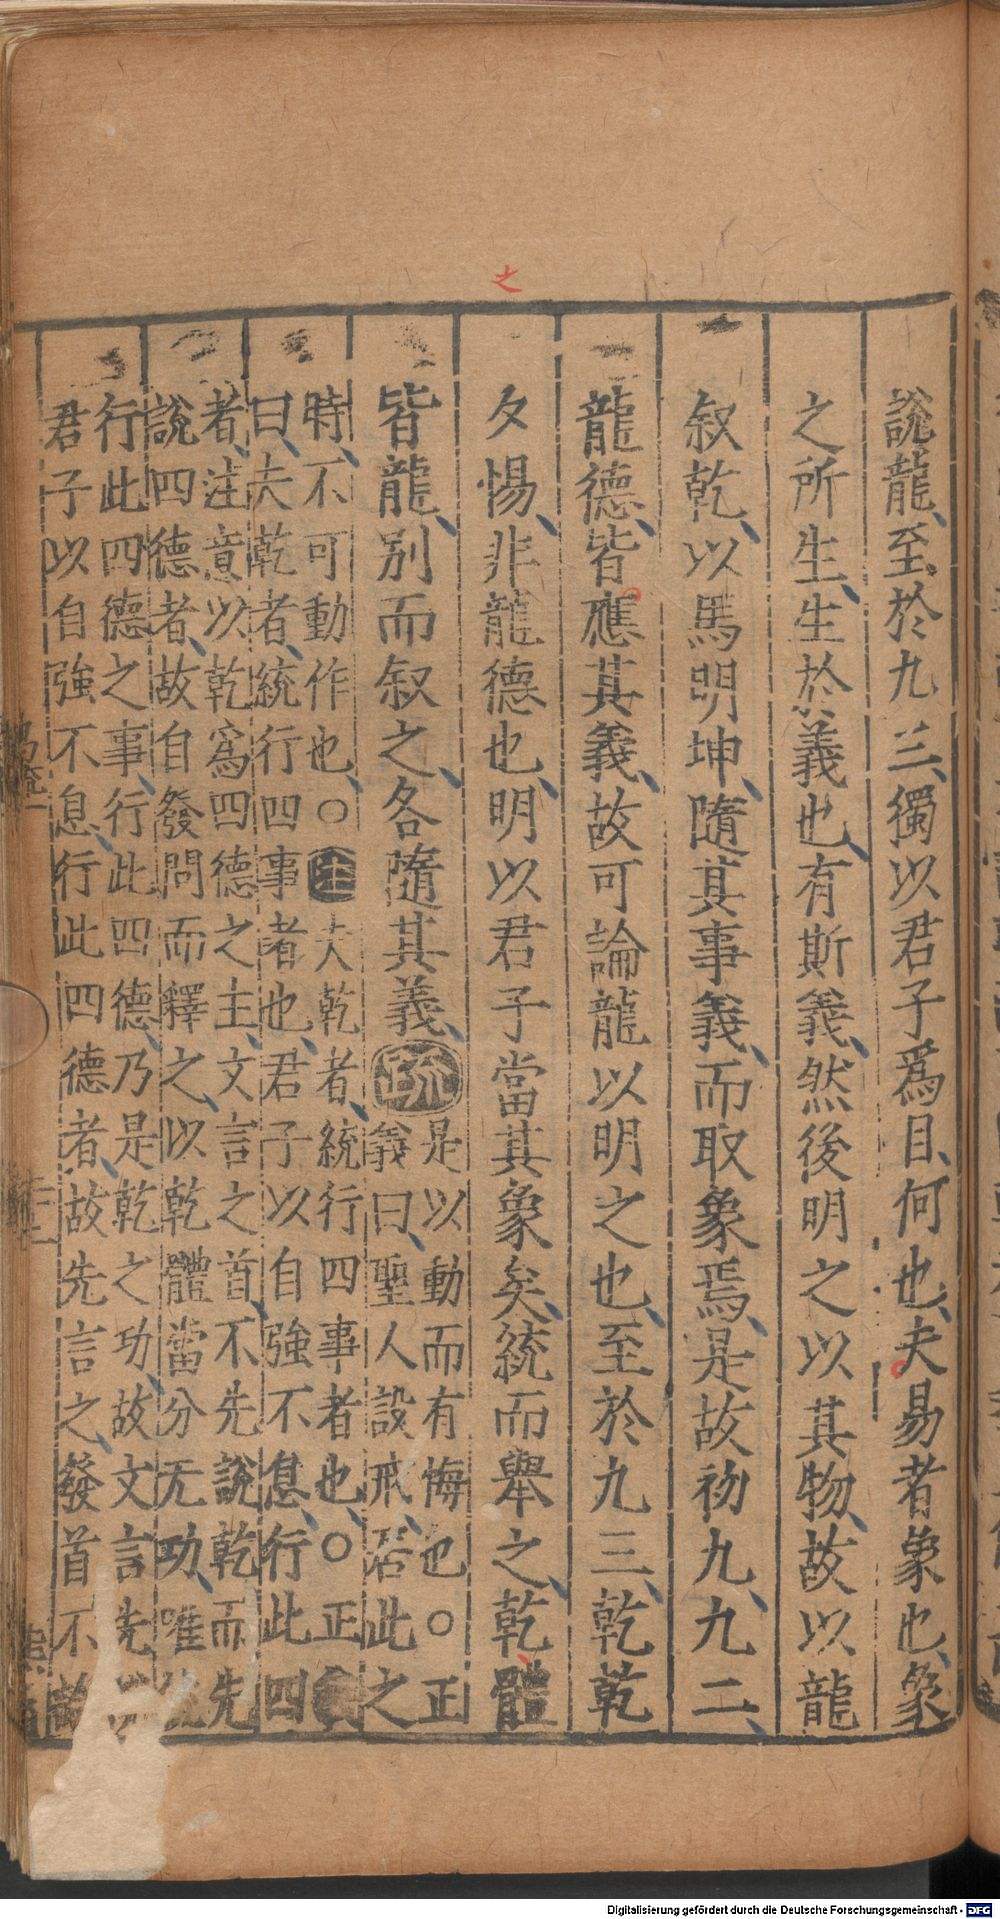 之
說龍至於九三獨以君子爲目何也夫易者象也象
之所生生於義也有斯義然後明之以其物故以龍
叙乾以馬明坤隨其事義而取象焉是故初九九二
龍德皆應其義故可論龍以明之也至於九三乾乾
夕惕非龍德也明以君子當其象矣統而舉之乾體
皆龍別而叙之各隨其義疏
是以動而有悔也○正
義曰聖人設戒居此之
時不可動作也○注夫乾者統行四事者也○正義
曰夫乾者統行四事者也君子以自強不息行此四
者注意以乾爲四德之主文言之首不先說乾而先
說四德者故自發問而釋之以乾體當分无功唯統
行此四德之事行此四德乃是乾之功故文言先
君子以自強不息行此四德者故先言之發首不
Digitalisierung gefördert durch die Deutsche Forschungsgemeinschaft - DFG